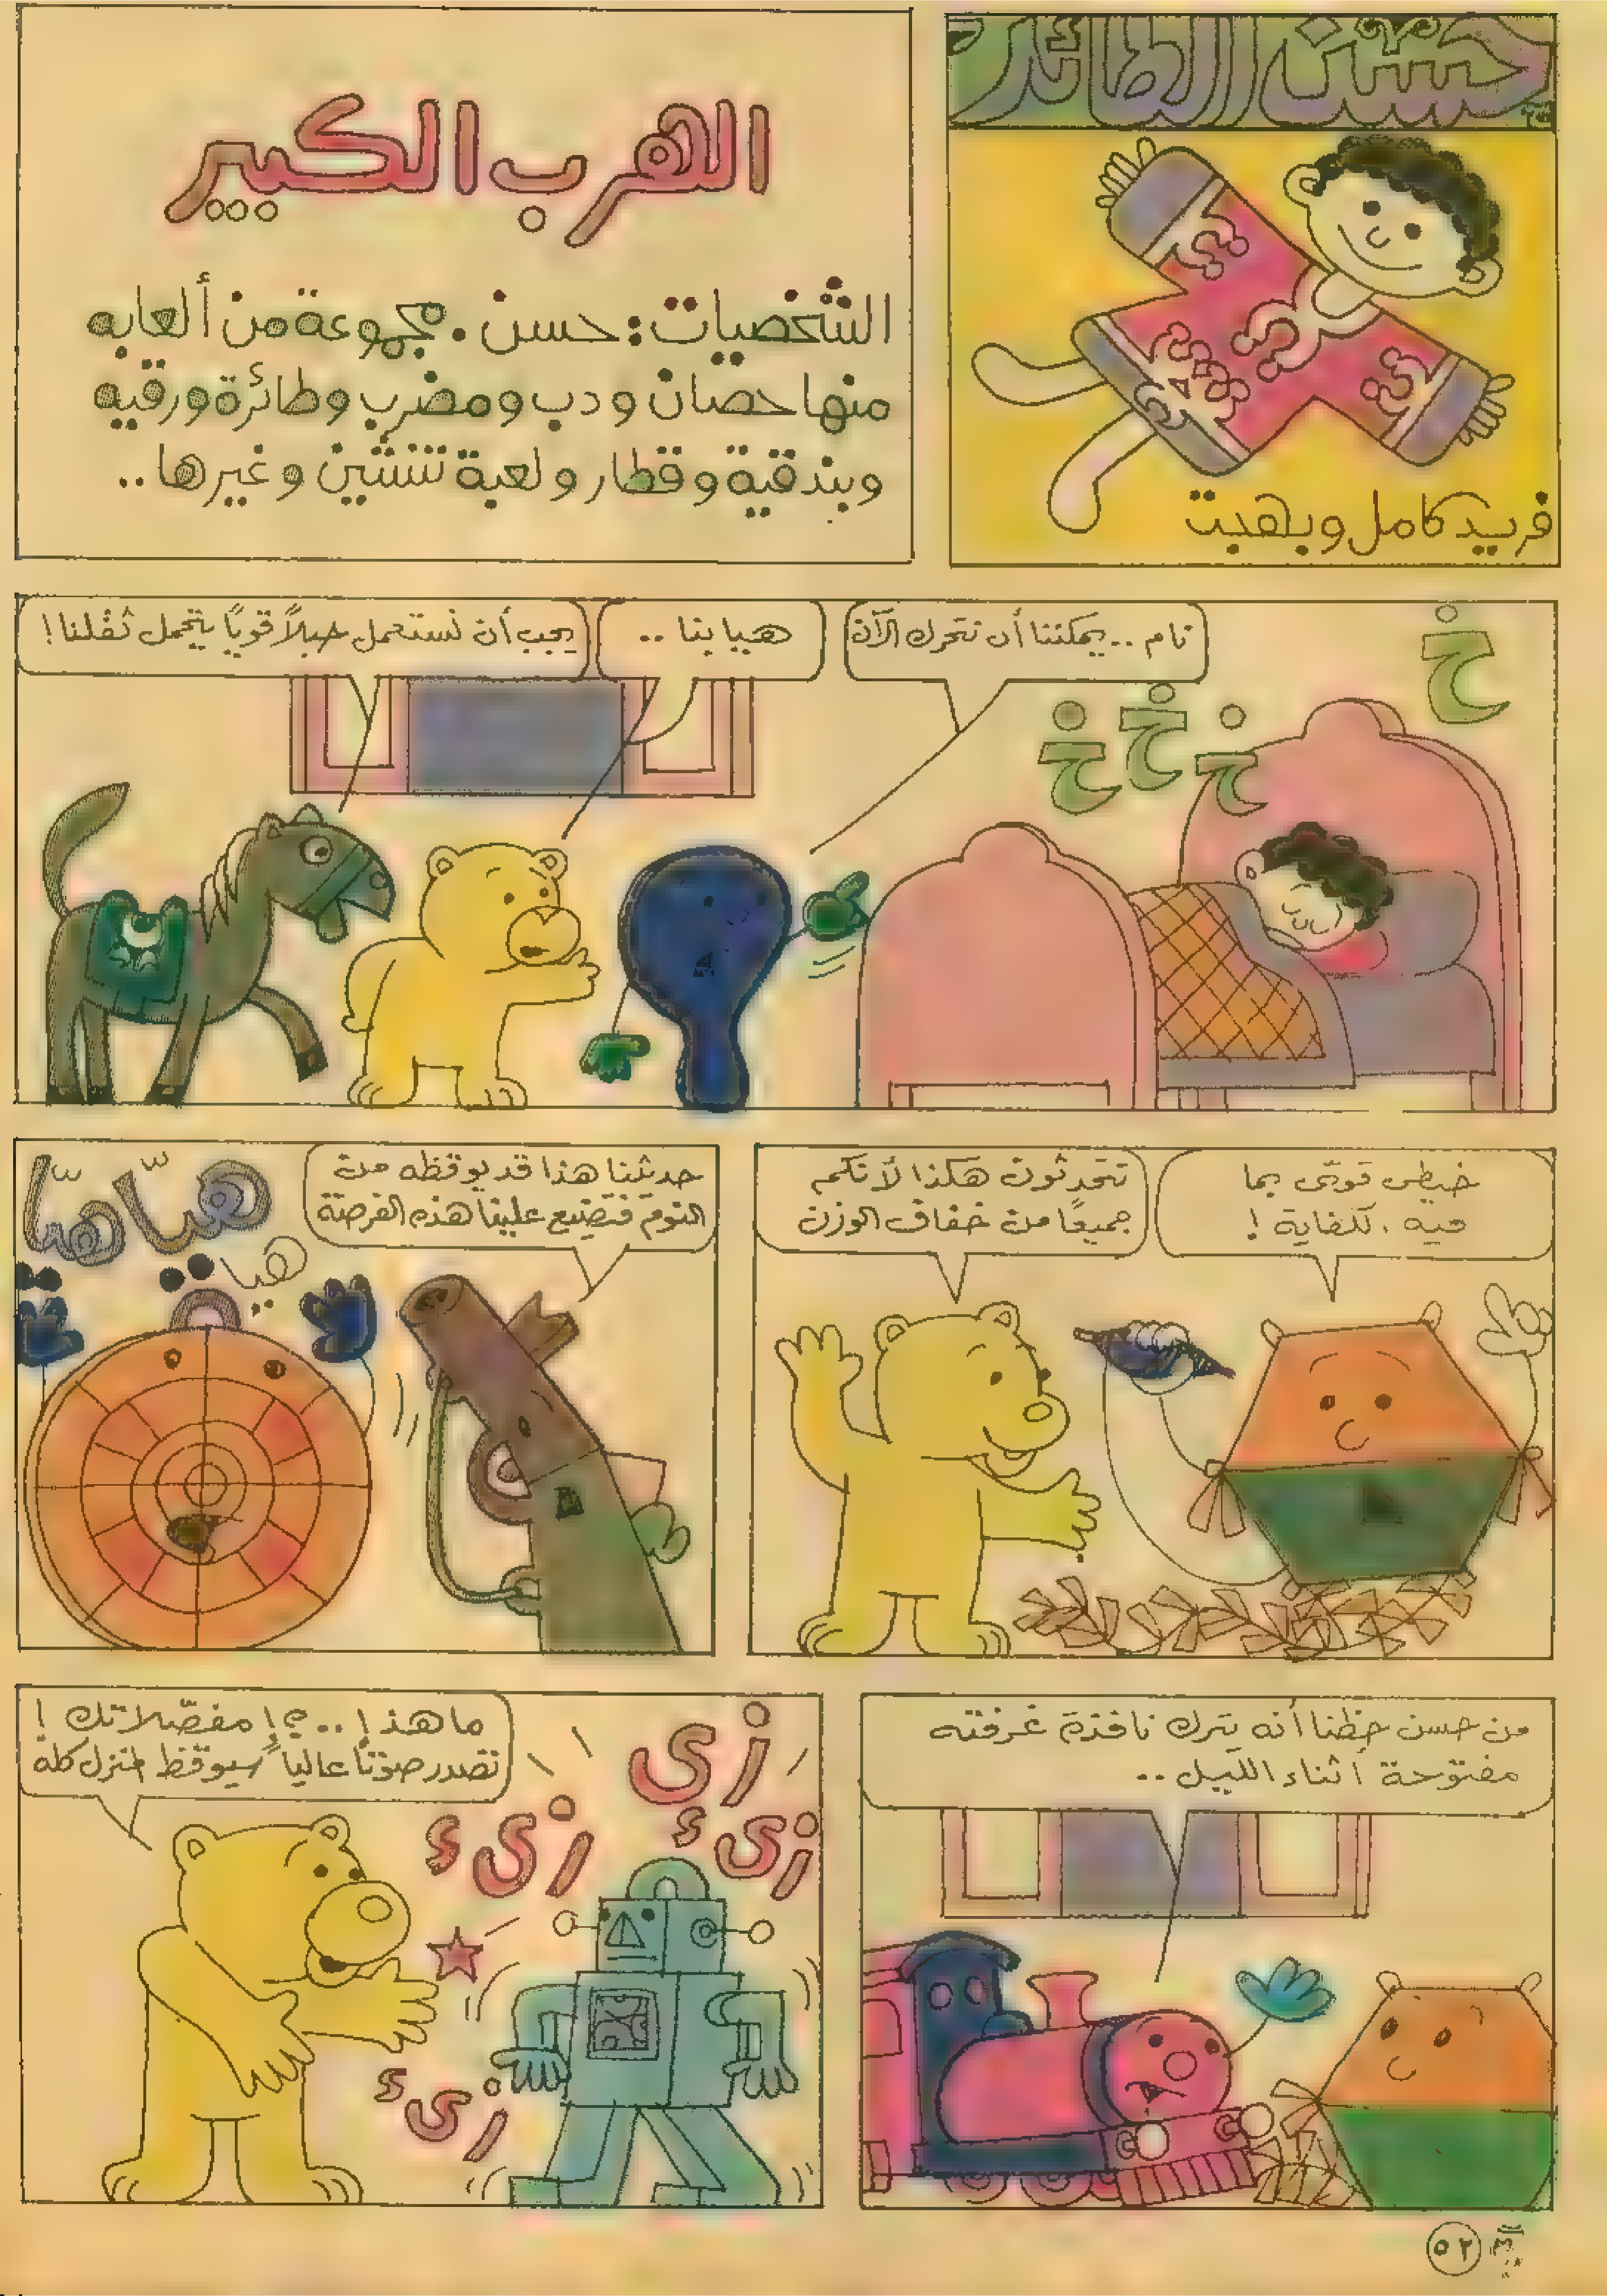 حسن الطائر
فريد كامل وبهجت
الهرب الكبير
الشخصيات: حسن. مجموعة من ألعابه
منها حصان ودب ومضرب وطائرة ورقيه
وبندقية وقطار ولعبة تنشين وغيرها..
خ
خ خ خ
نام.. يمكننا أن نتحرك الآن
هيا بنا..
يجب أن نستعمل حبلاً قوياً يتحمل ثقلنا!
خيطى قوتى بما
فيه الكفاية!
تتحدثون هكذا لأنكم
جميعًا من خفاف الوزن
حديثنا هذا قد يوقظه من
النوم فتضيع علينا هذه الفرصة
هيّا هيّا
هيا
من حسن حظنا أنه يترك نافذة غرفته
مفتوحة أثناء الليل..
زى
زىء
زىء
زىء
ما هذا!..؟! مفصّلاتك!
تصدر صوتاً عالياً سيوقظ المنزل كله
٥٢